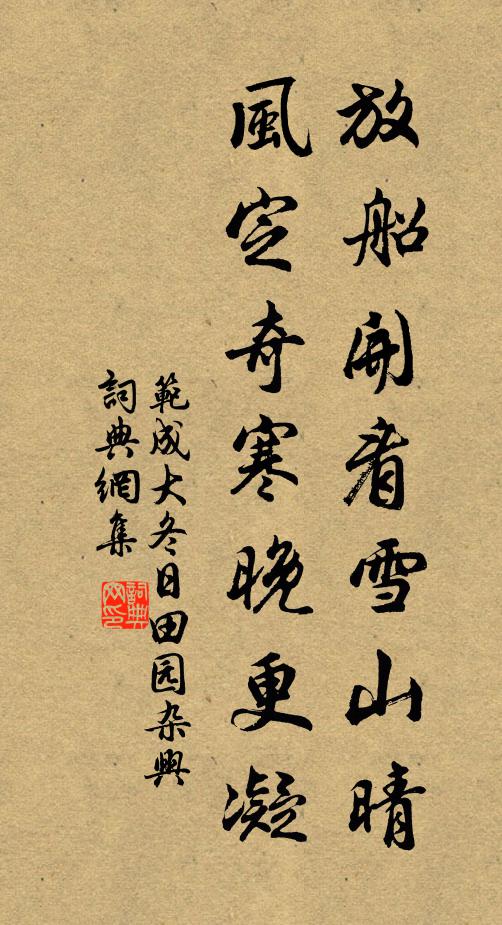 放船開看雪山晴
風定奇寒晚更凝
範成大冬日田园杂興
詞典網集
詞典
网印